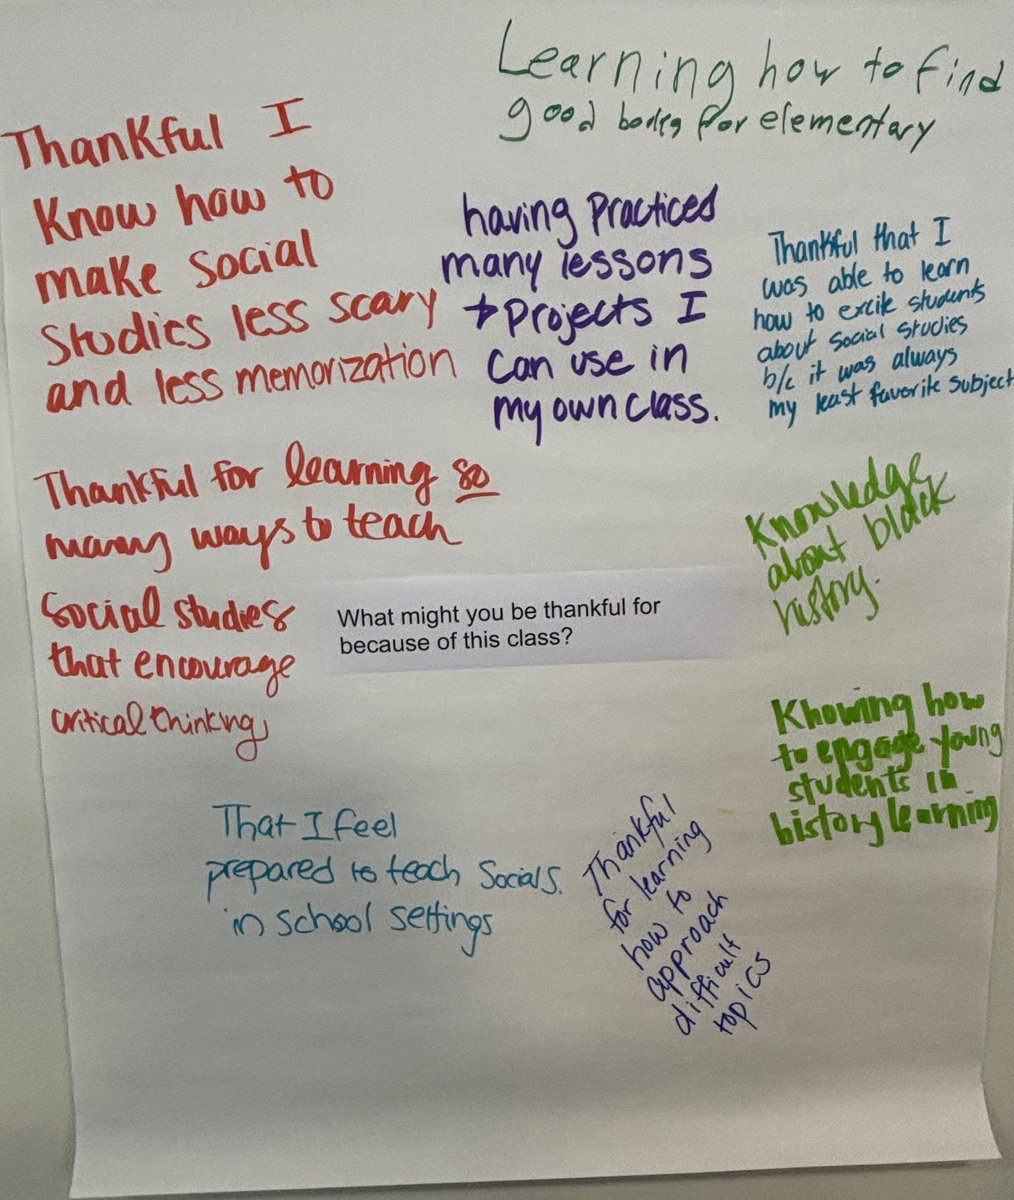 Learning how to find
good books for elementary
Thankful I
Know how to
make Social
Studies less scary
and less memorization
having Practiced
many lessons
+ Projects I
Can use in
my own class.
Thankful that I
was able to learn
how to excite students
about Social Studies
b/c it was always
my least favorite subject
Thankful for learning so
many ways to teach
Social studies
that encourage
critical thinking
Knowledge
about black
history.
What might you be thankful for
because of this class?
Knowing how
to engage young
students in
history learning
That I feel
prepared to teach Social S.
in school settings
Thankful
for learning
how to
approach
difficult
topics